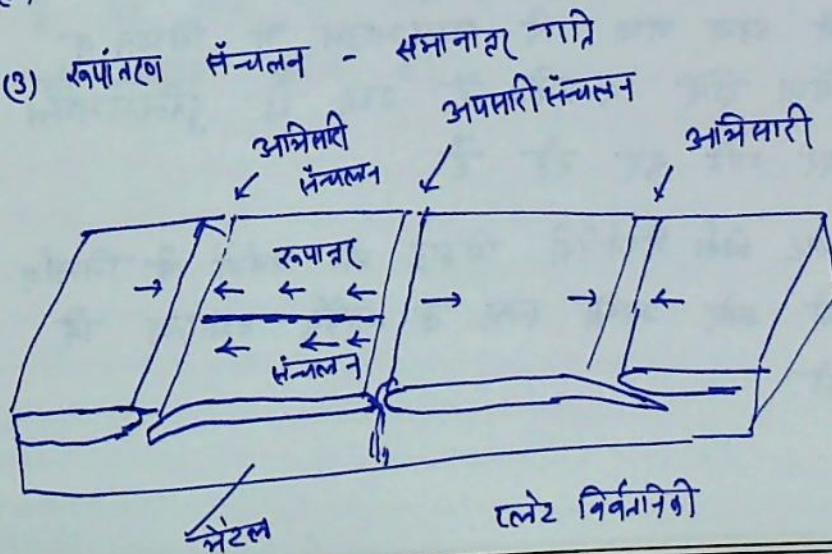 (3) रूपांतरण संचलन - समानान्तर गति
अभिसारी
संचलन
अपसारी संचलन
अभिसारी
रूपान्तर
संचलन
मेंटल
प्लेट विवर्तनिकी